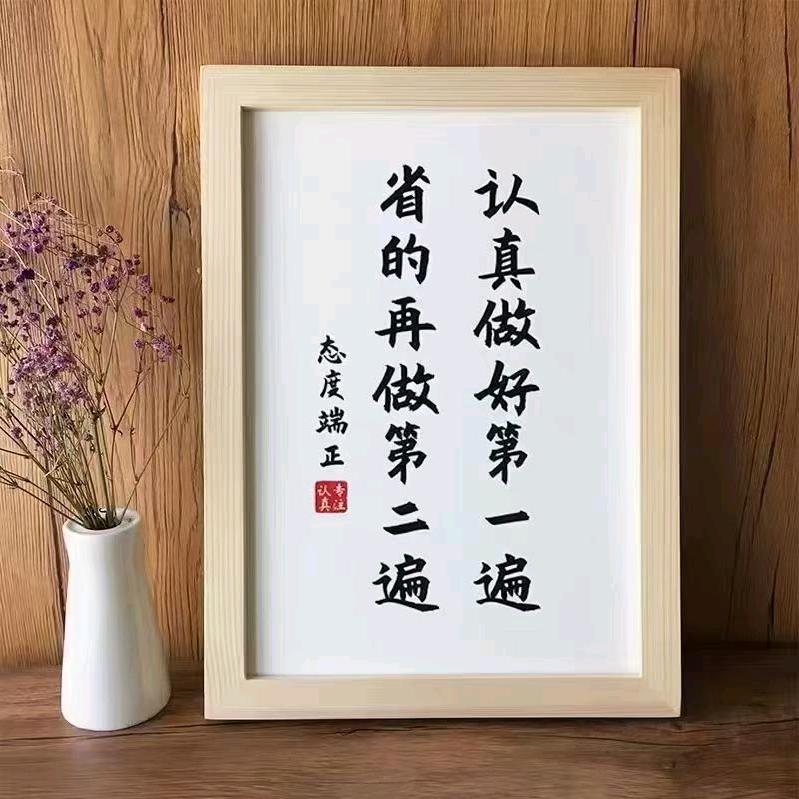 认真做好第一遍
省的再做第二遍
态度端正
专注
认真